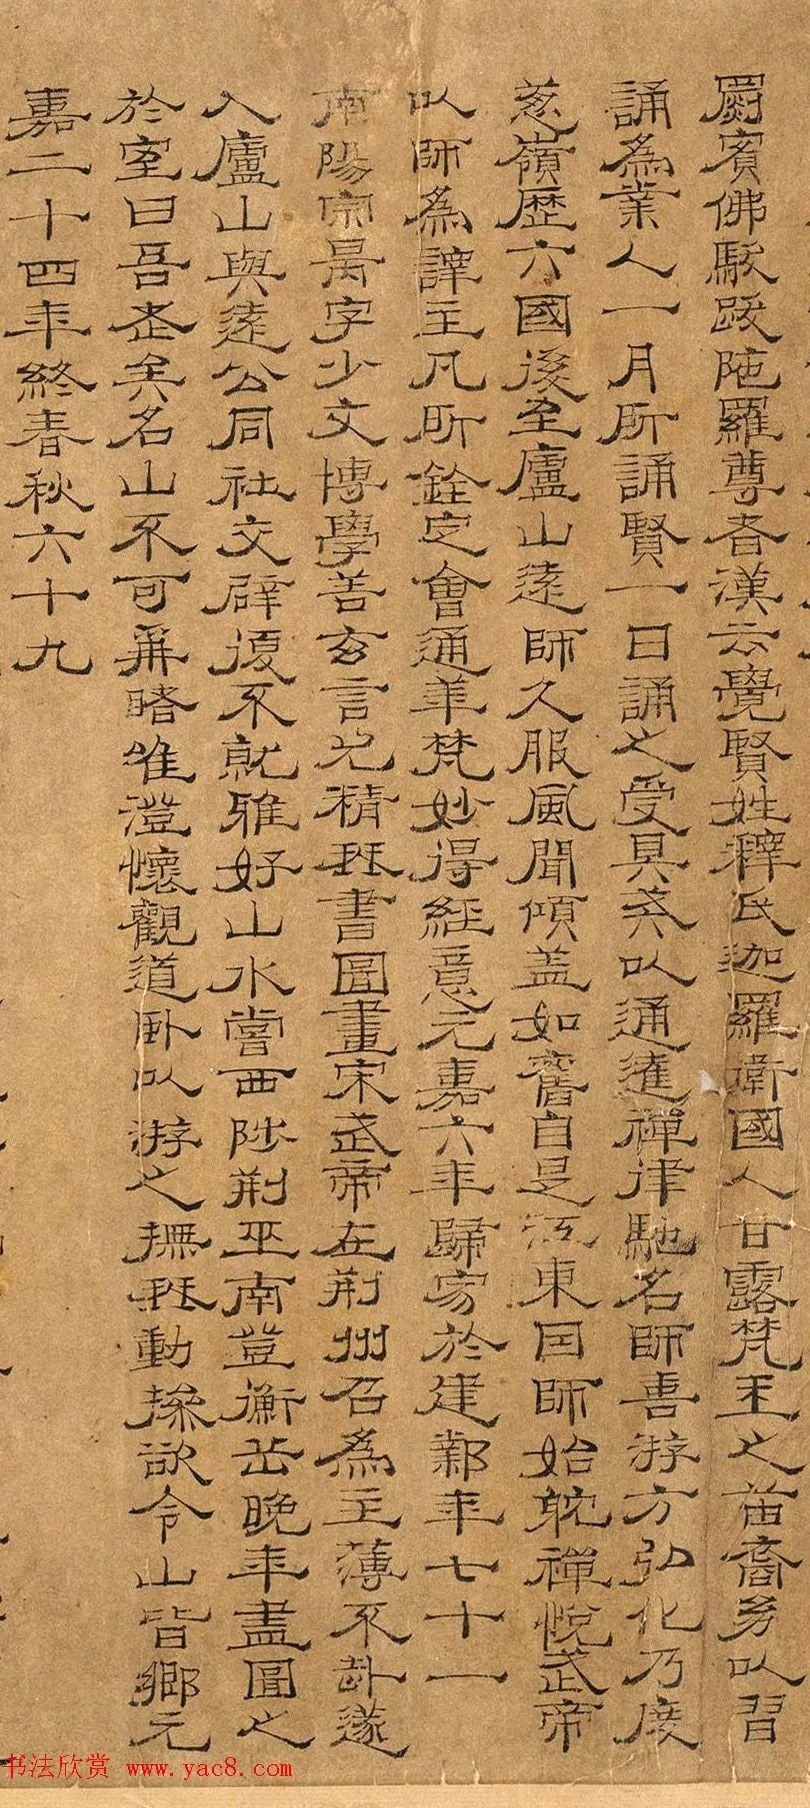 罽賓佛馱跋陁羅尊者漢云覺賢姓釋氏迦羅衛國人甘露梵王之苗裔㓜以習
誦為業人一月所誦賢一日誦之受具美以通達禪律馳名師喜游方弘化乃度
葱嶺歷六國後至廬山遠師久服風聞傾盖如舊自是江東囯師始躭禪悅武帝
以師為譯主凡所銓定會通華梵妙得經意元嘉六年歸穸於建鄴年七十一
南陽宗炳字少文博學善玄言尤精琹書圖畫宋武帝在荊州召為主薄不赴遂
入廬山與遠公同社文辟復不就雅好山水嘗西陟荊巫南登衡岳晚年盡圖之
於室曰吾老矣名山不可再睹唯澄懷觀道卧以游之撫琹動操欲令山皆嚮元
嘉二十四年終春秋六十九
书法欣赏 www.yac8.com